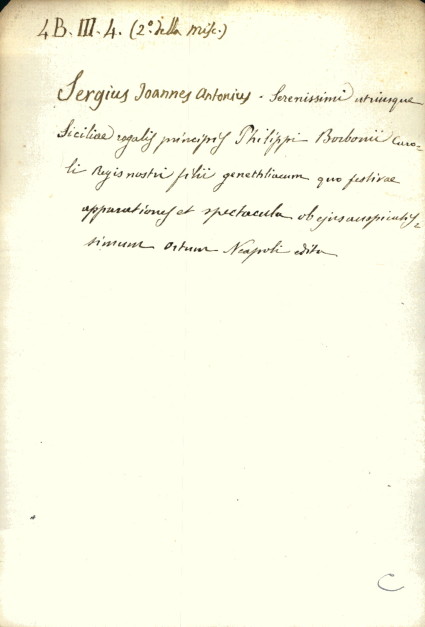 4 B. III. 4. (2º. della Misc.)
Sergius Joannes Antonius - Serenissimi utriusque
Siciliae regalis principis Philippi Borbonii Caro-
li Regis nostri filii genethliacum quo festivae
apparationes et spectacula ob ejus auspicatis=
simum ortum Neapoli edita
C